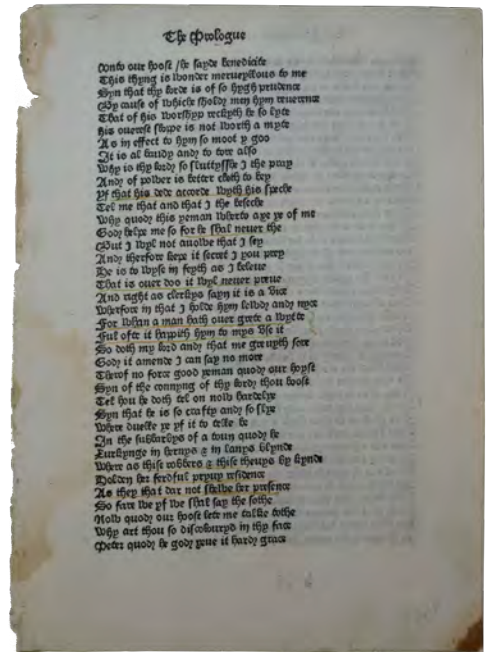 The Prologue
Unto our hoost / he sayde benedicite
This thyng is wonder merueyllous to me
Syn that thy lorde is of so hygh prudence
By cause of whiche sholdy men hym reuerence
That of his worshyp reckyth he so lyte
his ouerest sloppe is not worth a myte
As in effect to hym so moot y goo
It is al baudy and to tore also
Why is thy lord so sluttyssh I the pray
And of power is better cloth to bey
Yf that his dede accorde wyth his speche
Tel me that and that I the beseche
Why quod this yeman wherto axe ye of me
God helpe me so for he shal neuer the
But I wyl not auowe that I sey
And therfore kepe it secret I you prey
He is to wyse in feyth as I beleue
That is ouer doo it wyl neuer preue
And right as clerkys sayn it is a vice
Wherfore in that I holde hym lewd and nyce
For whan a man hath ouer grete a wytte
Ful ofte it happith hym to mys vse it
So doth my lord and that me greuyth sore
God it amende I can say no more
Therof no force good yeman quod our hoost
Syn of the connyng of thy lord thou boost
Tel hou he doth tel on now hardelye
Syn that he is so crafty and so slye
Where duelle ye yf it to telle be
In the subbarbys of a toun quod he
Lurkynge in hernys & in lanys blynde
Where as thise robbers & thise theuys by kynde
Holden her ferdful pryuy residence
As they that dar not shewe her presence
So fare we yf we shal say the sothe
Now quod our hoost lete me talke tothe
Why art thou so discolouryd in thy face
Peter quod he god yeue it hard grace